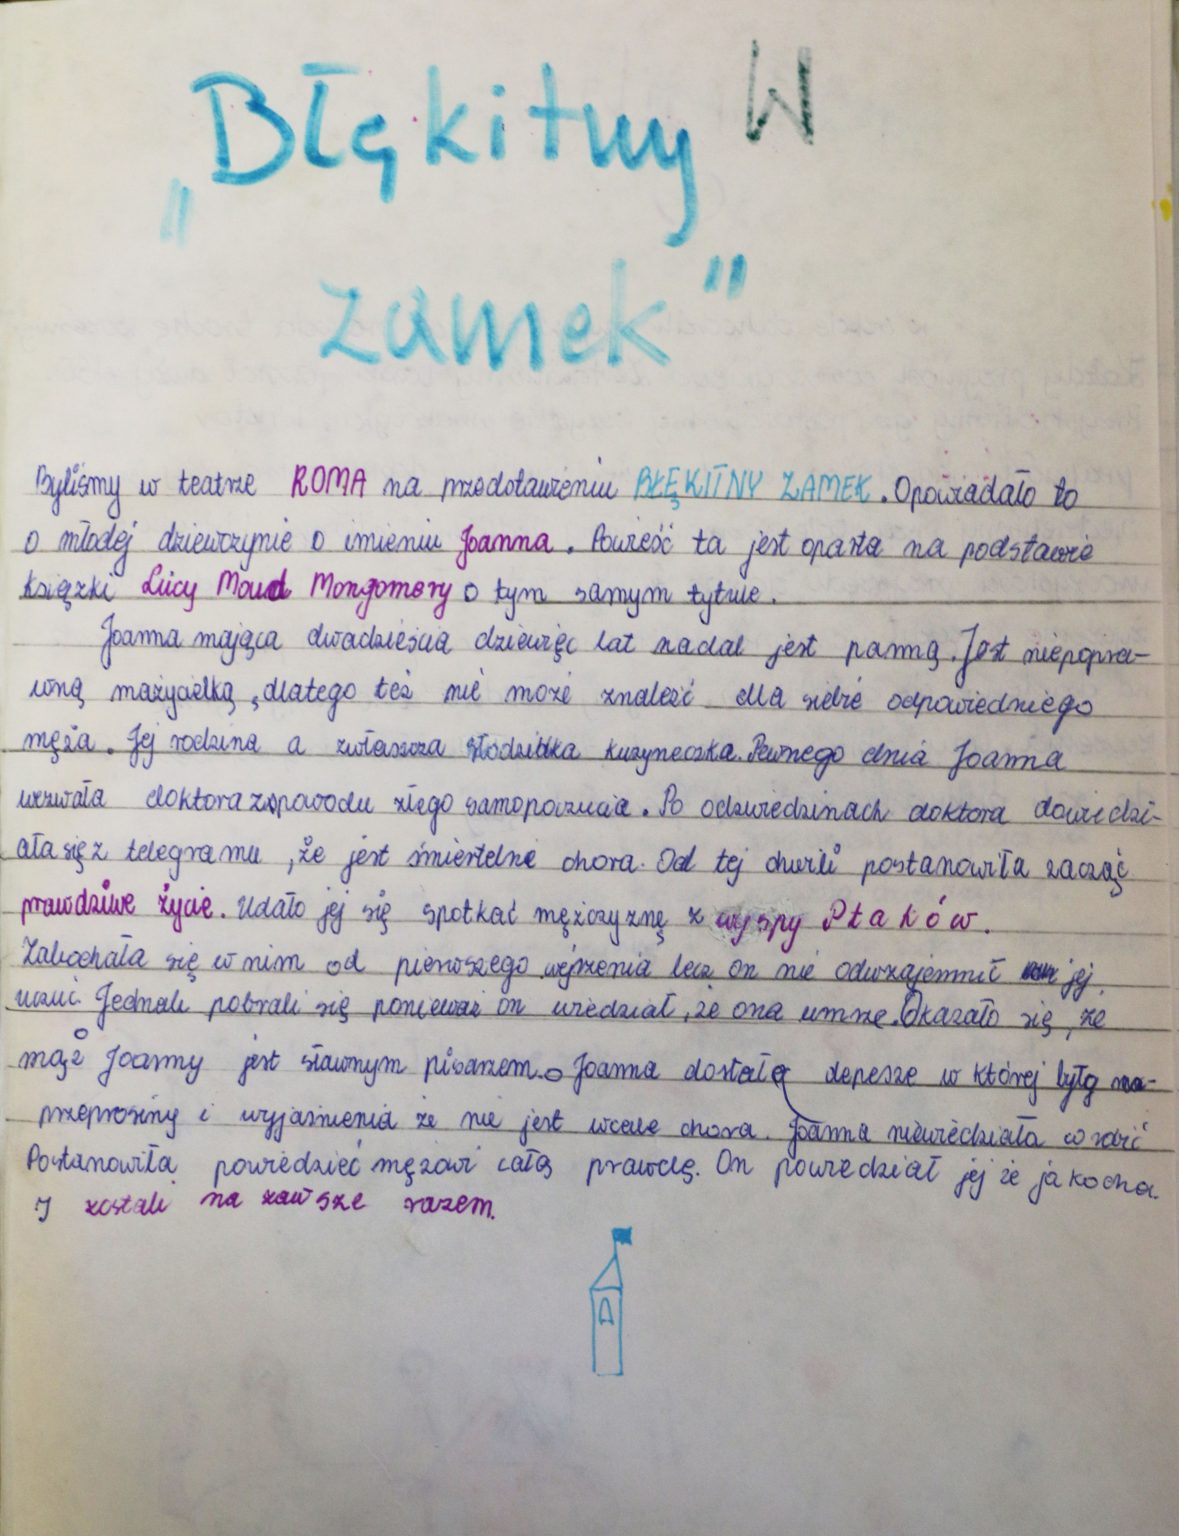 Błękitny W
„
zamek"
Byliśmy w teatrze ROMA na przedstawieniu BŁĘKITNY ZAMEK. Opowiadało to
o młodej dziewczynie o imieniu Joanna. Powieść ta jest oparta na podstawie
książki Lucy Moud Mongomery o tym samym tytule.
Joanna mająca dwadzieścia dziewięć lat nadal jest panną. Jest niepopra-
wną mażycielką, dlatego też nie może znaleść dla siebie odpowiedniego
męża. Jej rodzina a zwłaszcza słodziutka kuzyneczka. Pewnego dnia Joanna
wezwała doktora z powodu złego samopoczucia. Po odwiedzinach doktora dowiedzi-
ała się z telegramu, że jest śmiertelnie chora. Od tej chwili postanowiła zacząć
prawdziwe życie. Udało jej się spotkać mężczyznę z wyspy Ptaków.
Zakochała się w nim od pierwszego wejrzenia lecz on nie odwzajemnił jej
uczuć. Jednak pobrali się ponieważ on wiedział, że ona umrze. Okazało się, że
mąż Joanny jest sławnym pisarzem. Joanna dostała depesze w której były
przeprosiny i wyjaśnienia że nie jest wcale chora. Joanna niewiedziała co robić
Postanowiła powiedzieć mężowi całą prawdę. On powiedział jej że ja kocha.
I zostali na zawsze razem.